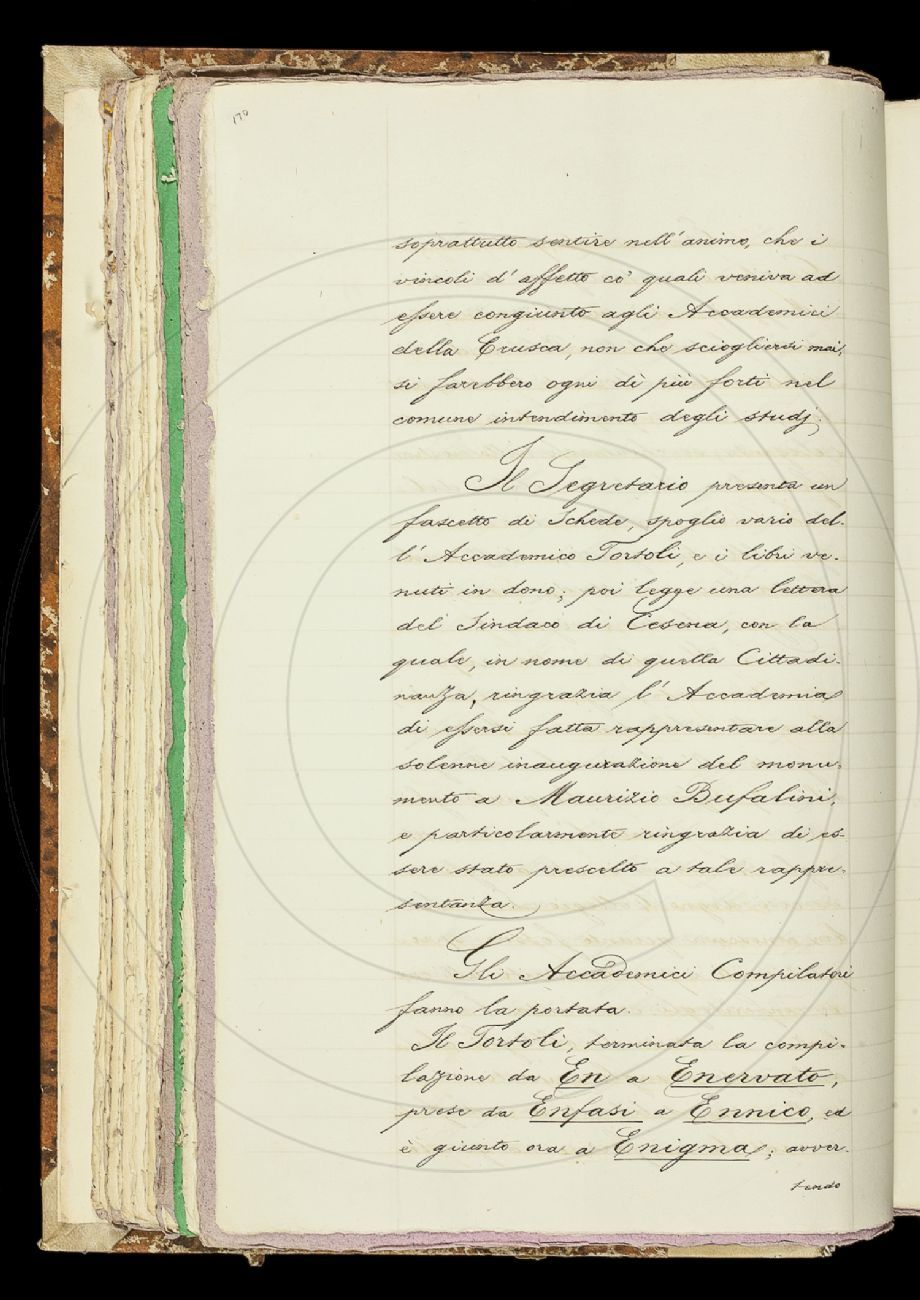 170
soprattutto sentire nell'animo, che i
vincoli d'affetto co' quali veniva ad
essere congiunto agli Accademici
della Crusca, non che sciogliersi mai,
si farebbero ogni dì più forti nel
comune intendimento degli studj.
Il Segretario presenta un
fascetto di Schede, spoglio vario del-
l'Accademico Tortoli, e i libri ve-
nuti in dono; poi legge una lettera
del Sindaco di Cesena, con la
quale, in nome di quella Cittadi-
nanza, ringrazia l'Accademia
di essersi fatta rappresentare alla
solenne inaugurazione del monu-
mento a Maurizio Bufalini,
e particolarmente ringrazia di es-
sere stato prescelto a tale rappre-
sentanza.
Gli Accademici Compilatori
fanno la portata.
Il Tortoli, terminata la compi-
lazione da En a Enervato,
prese da Enfasi a Ennico, ed
è giunto ora a Enigma; avver-
tendo